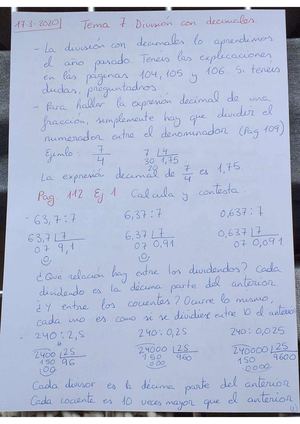 17-3-2020 Tema 7 División con decimales.
- La división con decimales lo aprendimos
el año pasado. Tenéis las explicaciones
en las páginas 104, 105 y 106. Si tenéis
dudas, preguntadnos.
- Para hallar la expresión decimal de una
fracción, simplemente hay que dividir el
numerador entre el denominador (Pag 109)
Ejemplo: 7/4 7 |4
30 1,75
20
La expresión decimal de 7/4 es 1,75.
Pag 112 Ej 1 Calcula y contesta.
63,7 : 7 6,37 : 7 0,637 : 7
63,7 |7 6,37 |7 0,637 |7
07 9,1 07 0,91 07 0,091
¿Qué relación hay entre los dividendos? Cada
dividendo es la décima parte del anterior
¿Y entre los cocientes? Ocurre lo mismo,
cada uno es como si se dividiese entre 10 el anterior
240 : 2,5 240 : 0,25 240 : 0,025
2400 |25 24000 |25 240000 |25
150 96 150 960 150 9600
00 000 0000
Cada divisor es la décima parte del anterior
Cada cociente es 10 veces mayor que el anterior